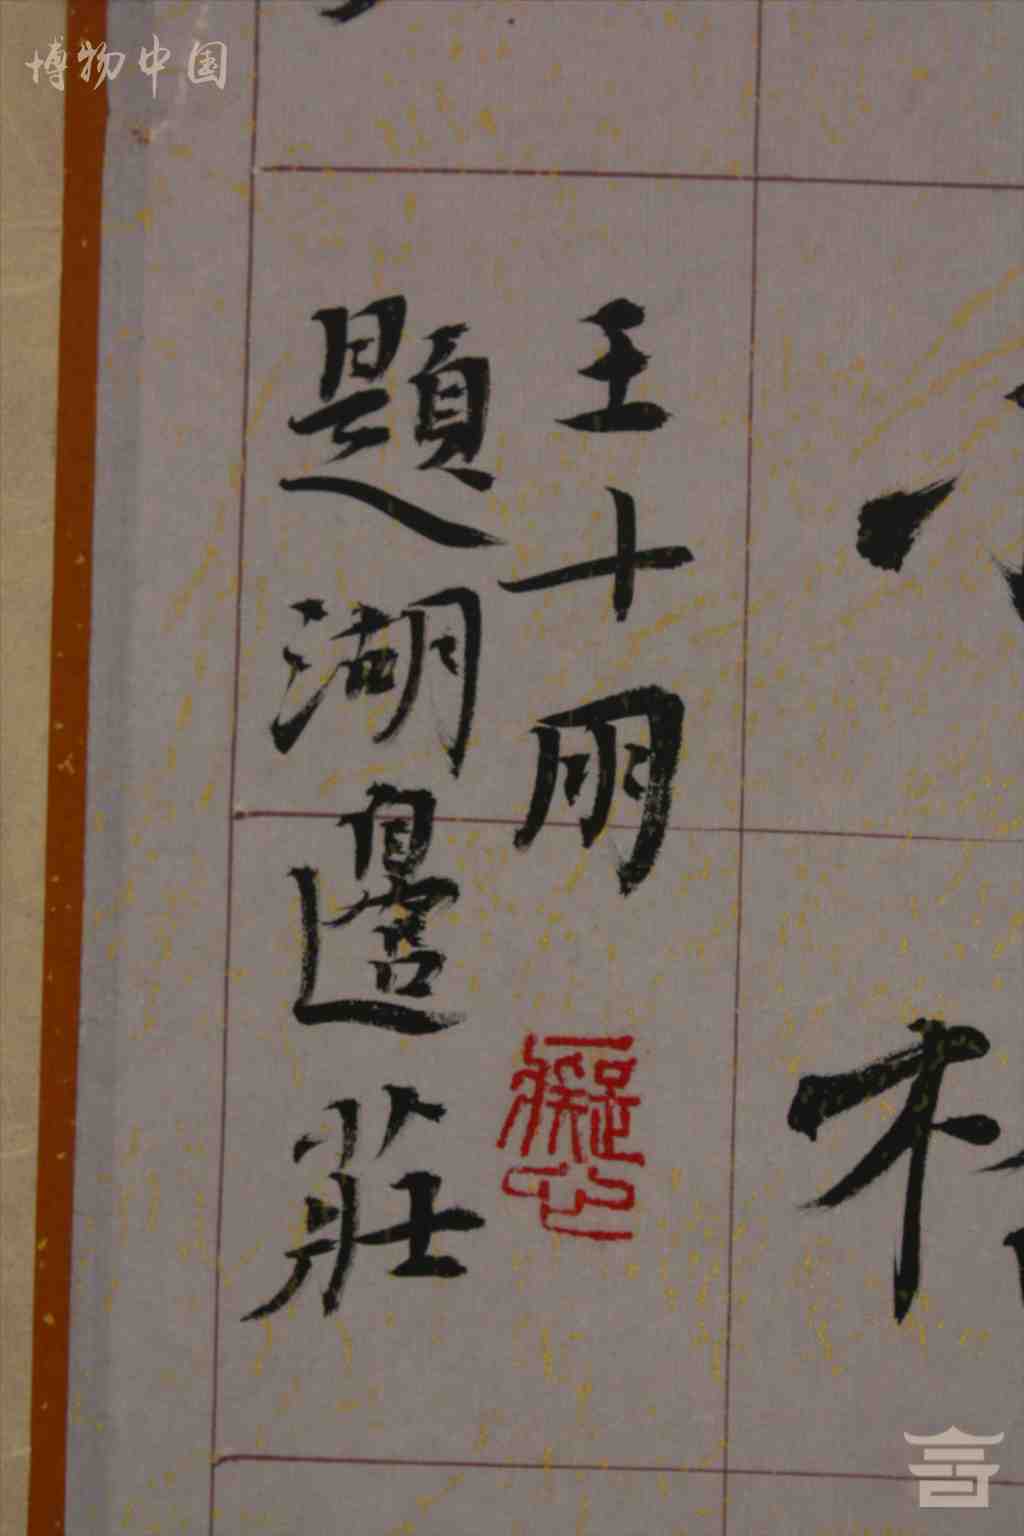 博物中国
王十朋
題湖邊莊